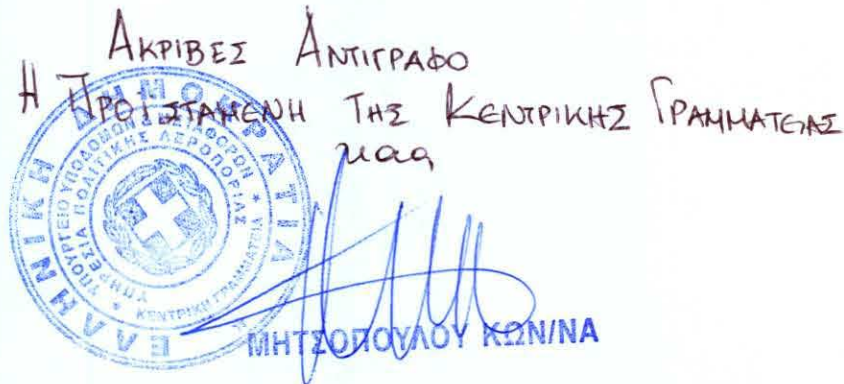 Ακριβες Αντιγραφο
Η Προϊσταμενη Της Κεντρικης Γραμματειας
κ.α.α.
ΕΛΛΗΝΙΚΗ ΔΗΜΟΚΡΑΤΙΑ
ΥΠΟΥΡΓΕΙΟ ΥΠΟΔΟΜΩΝ & ΜΕΤΑΦΟΡΩΝ
ΥΠΗΡΕΣΙΑ ΠΟΛΙΤΙΚΗΣ ΑΕΡΟΠΟΡΙΑΣ
ΚΕΝΤΡΙΚΗ ΓΡΑΜΜΑΤΕΙΑ
ΜΗΤΣΟΠΟΥΛΟΥ ΚΩΝ/ΝΑ